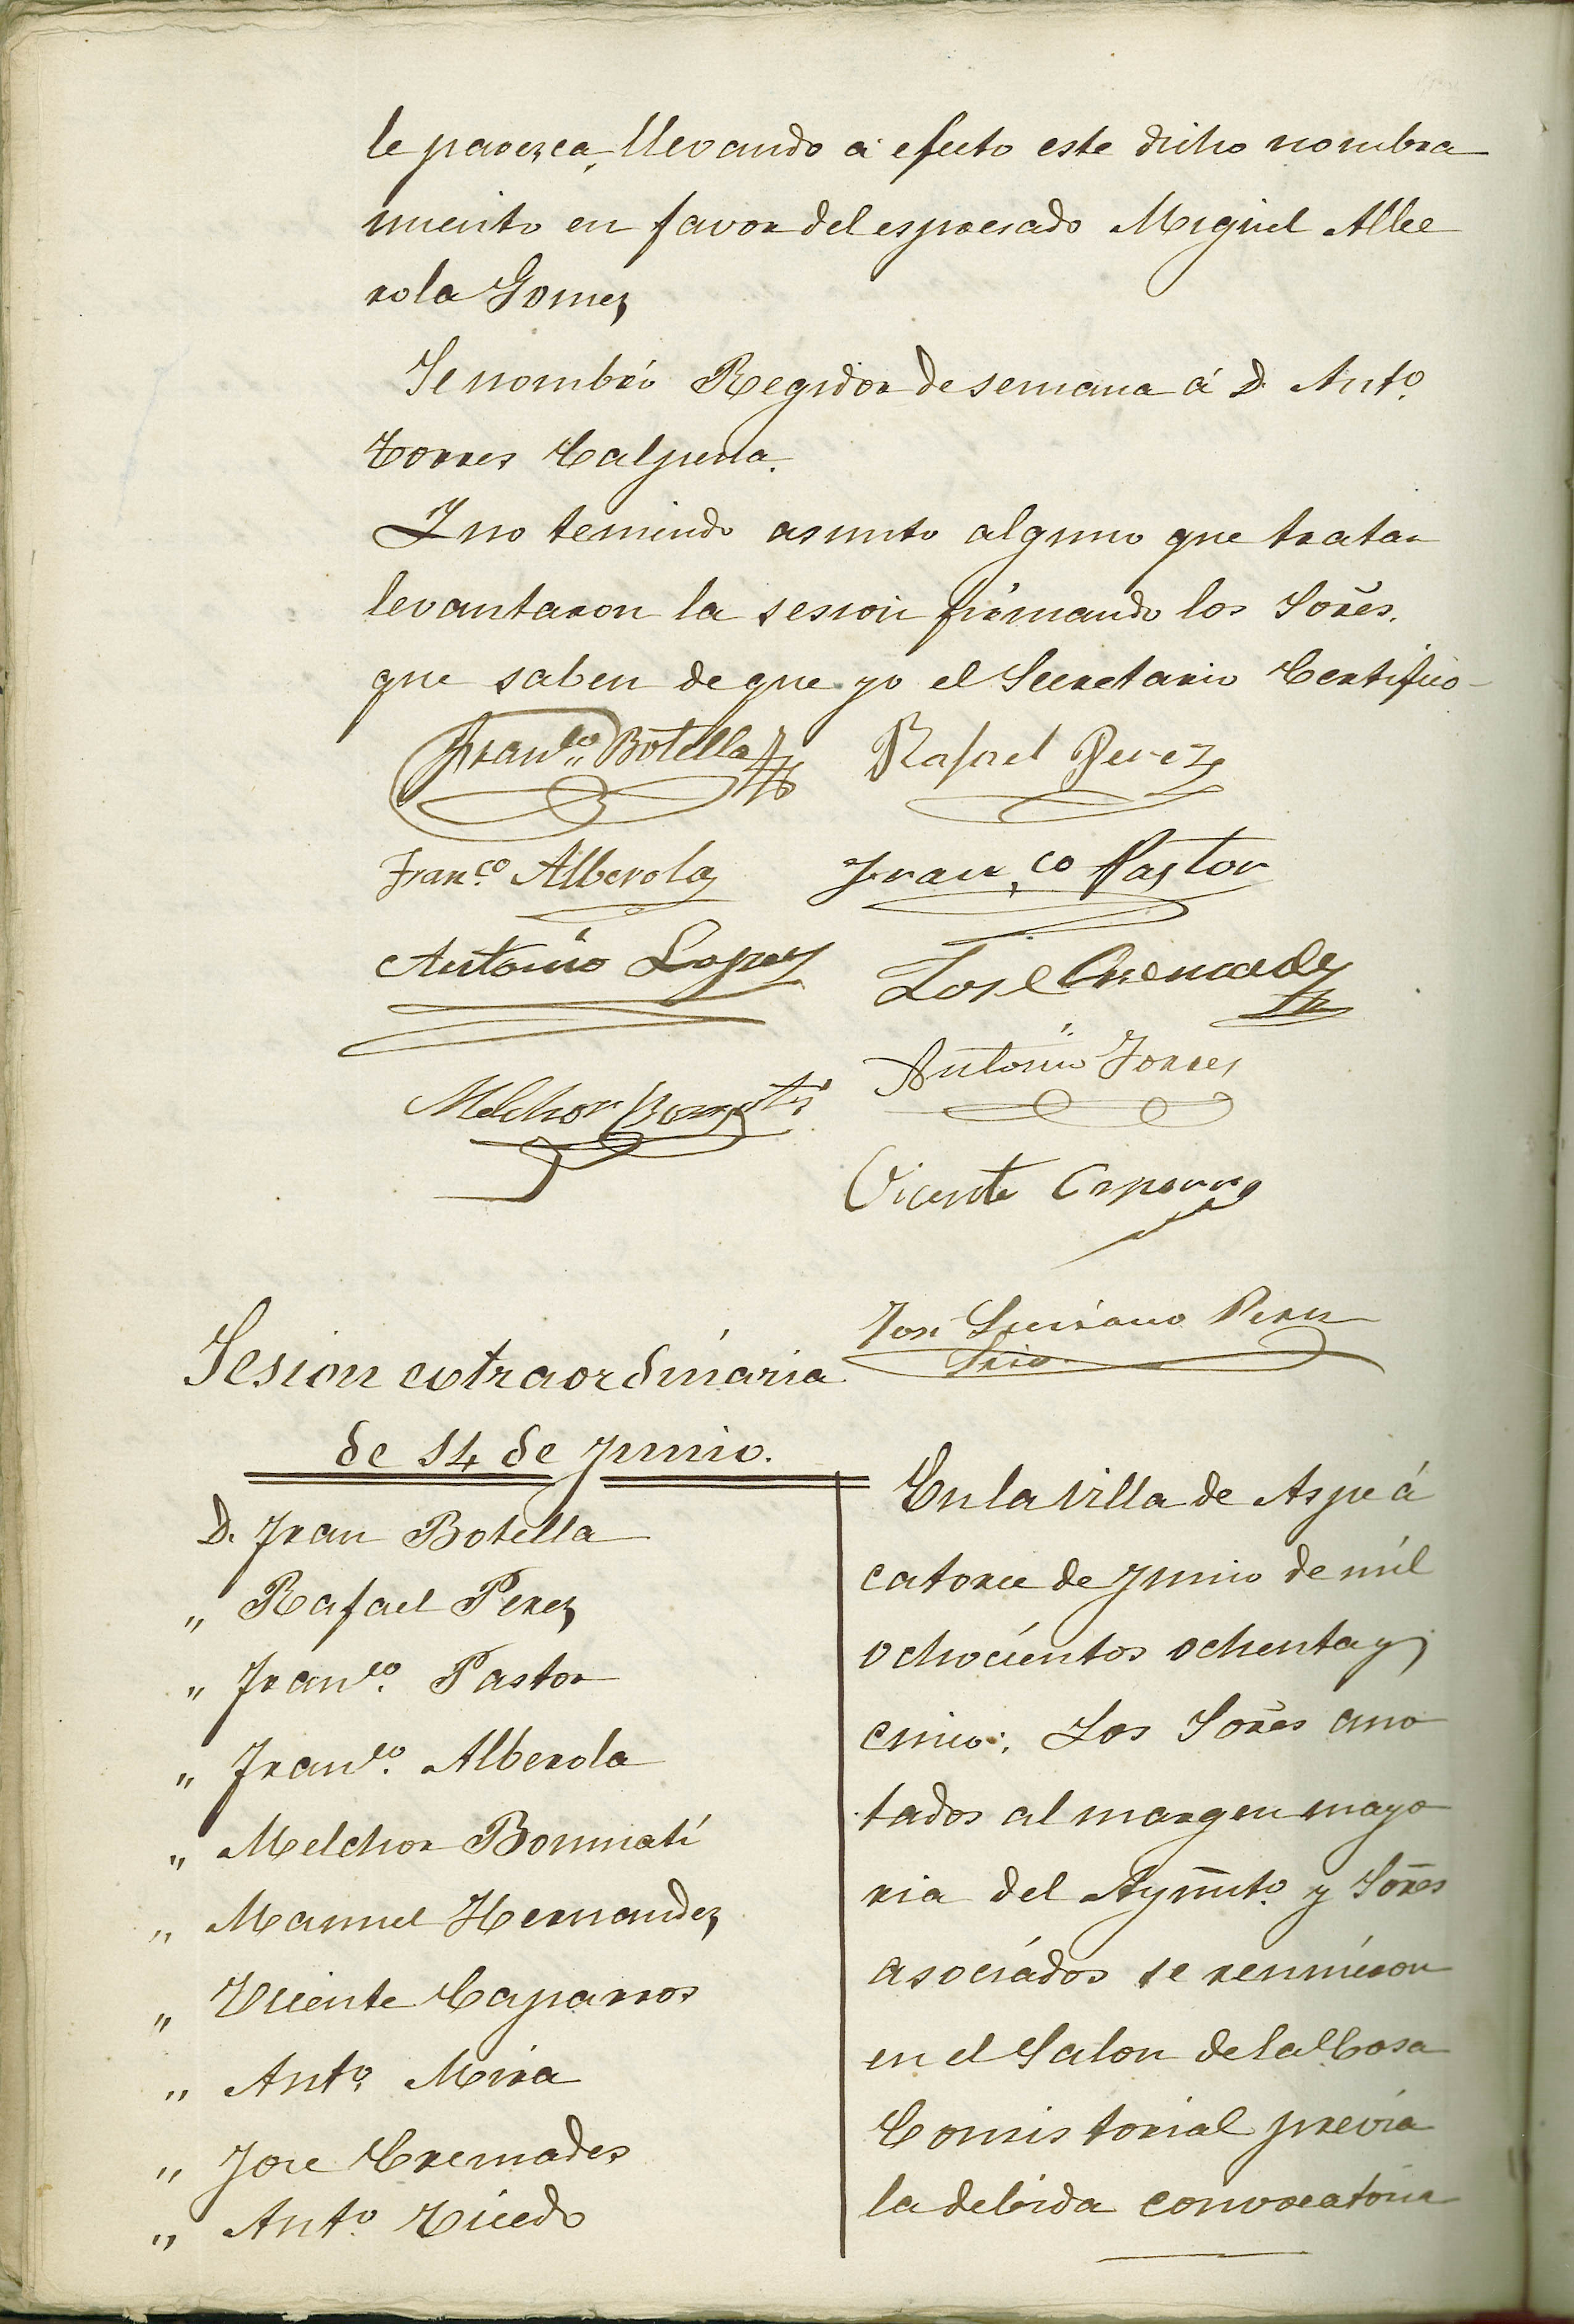 le parezca, llevando á efecto este dicho nombra
miento en favor del espresado Miguel Albe
rola Gomez
Se nombró Regidor de semana á D. Antº
Torres Calpena.
Y no teniendo asunto alguno que tratar
levantaron la sesion firmando los Sores.
que saben de que yo el Secretario Certifico
Franco. Botella Rafael Perez
Franco. Alberola Franco Pastor
Antonio Lopez José Cremades
Antonio Torres
Melchor Bonmati
Vicente Caparros
José Luciano Perez
Srio.
Sesion extraordinaria
de 14 de Junio.
D. Fran Botella
" Rafael Perez
" Franco. Pastor
" Franco. Alberola
" Melchor Bonmatí
" Manuel Hernandez
" Vicente Caparros
" Antº Mira
" Jose Cremades
" Antº
En la Villa de Aspe á
catorce de Junio de mil
ochocientos ochenta y
cinco: Los Sores ano
tados al margen mayo
ria del Aymto. y Sores
asociados se reunieron
en el Salon de la Casa
Consistorial previa
la debida convocatoria